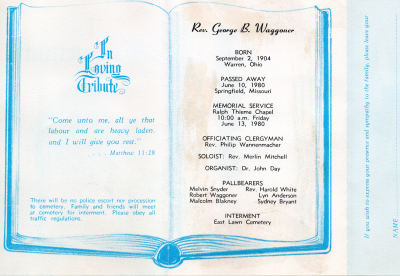 In
Loving
Tribute
"Come unto me, all ye that
labour and are heavy laden.
and I will give you rest."
. . . . Matthew 11:28
There will be no police escort nor procession
to cemetery. Family and friends will meet
at cemetery for interment. Please obey all
traffic regulations.
Rev. George B. Waggoner
BORN
September 2, 1904
Warren, Ohio
PASSED AWAY
June 10, 1980
Springfield, Missouri
MEMORIAL SERVICE
Ralph Thieme Chapel
10:00 a.m. Friday
June 13, 1980
OFFICIATING CLERGYMAN
Rev. Philip Wannenmacher
SOLOIST: Rev. Merlin Mitchell
ORGANIST: Dr. John Day
PALLBEARERS
Melvin Snyder Rev. Harold White
Robert Waggoner Lyn Anderson
Malcolm Blakney Sydney Bryant
INTERMENT
East Lawn Cemetery
If you wish to express your presence and sympathy to the family, please leave your
NAME